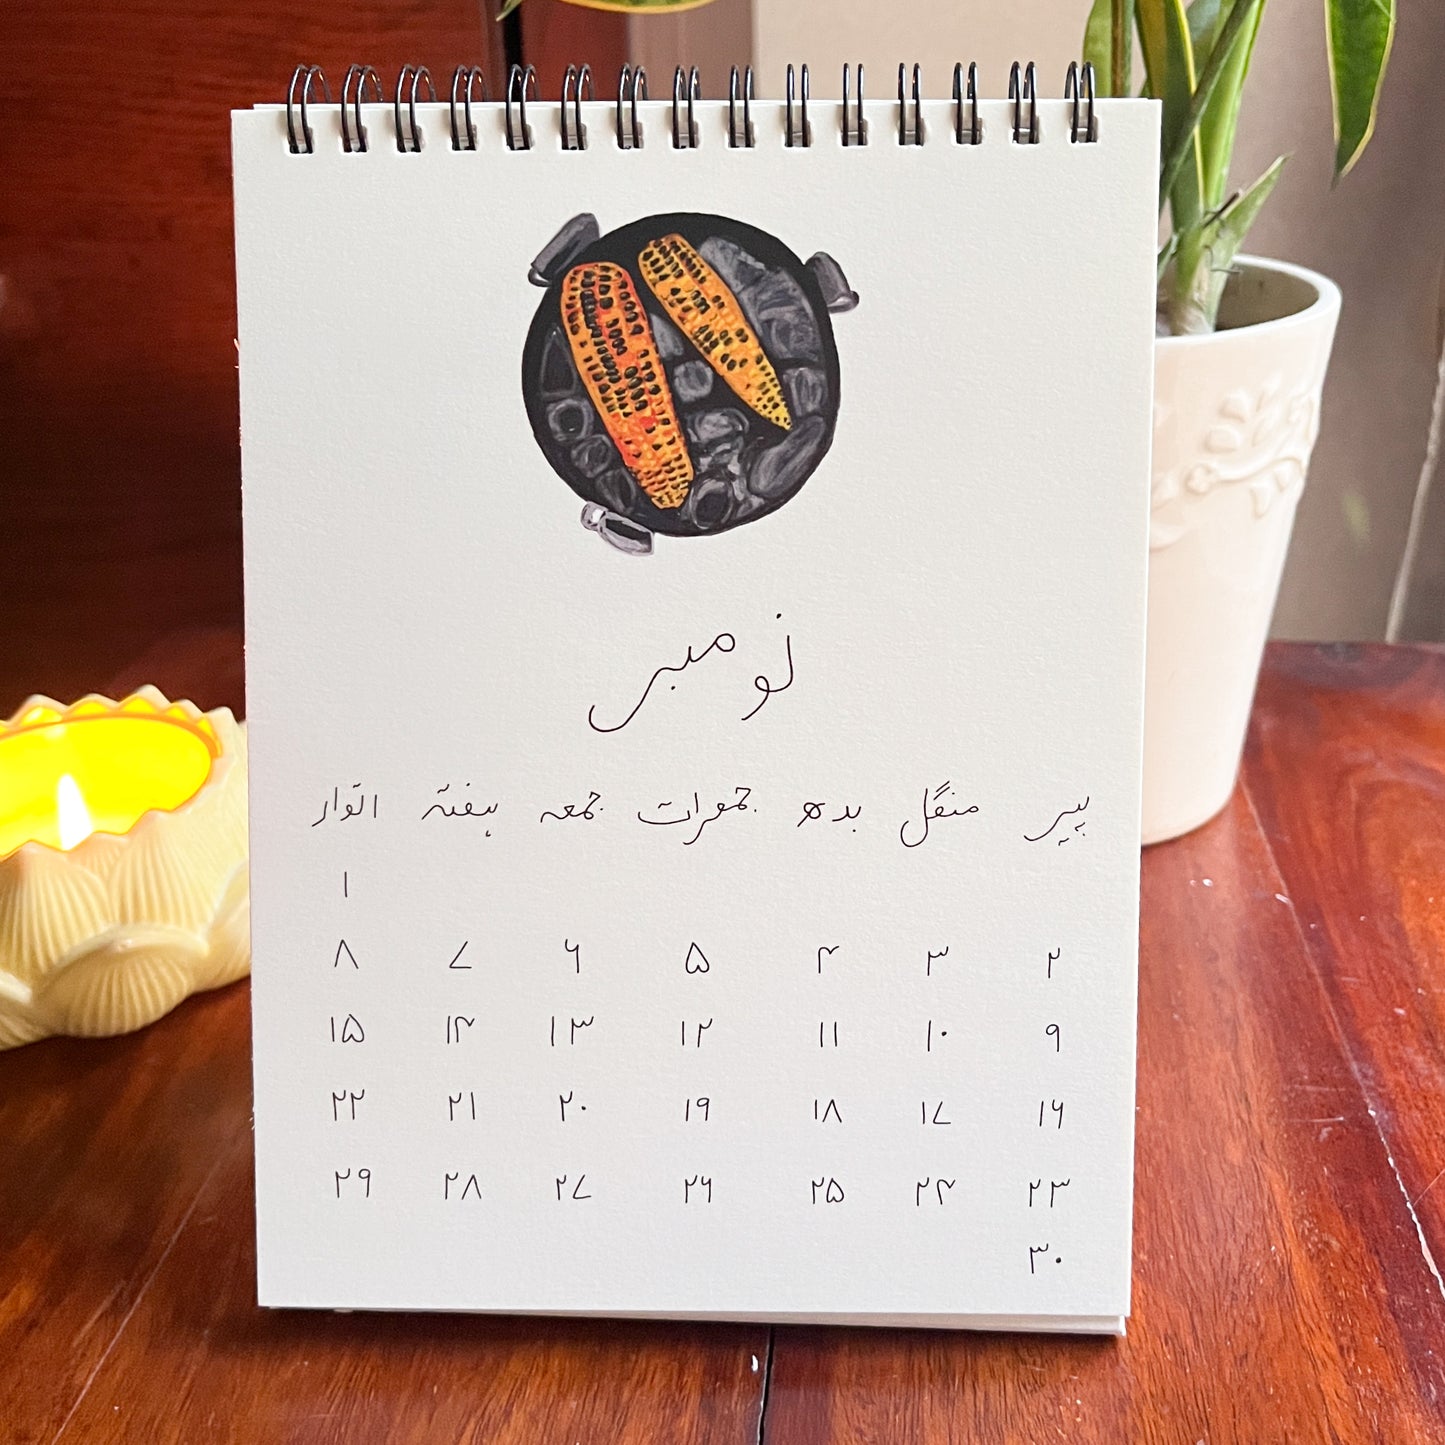 نومبر
پیر منگل بدھ جمعرات جمعہ ہفتہ اتوار
۱
۲ ۳ ۴ ۵ ۶ ۷ ۸
۹ ۱۰ ۱۱ ۱۲ ۱۳ ۱۴ ۱۵
۱۶ ۱۷ ۱۸ ۱۹ ۲۰ ۲۱ ۲۲
۲۳ ۲۴ ۲۵ ۲۶ ۲۷ ۲۸ ۲۹
۳۰